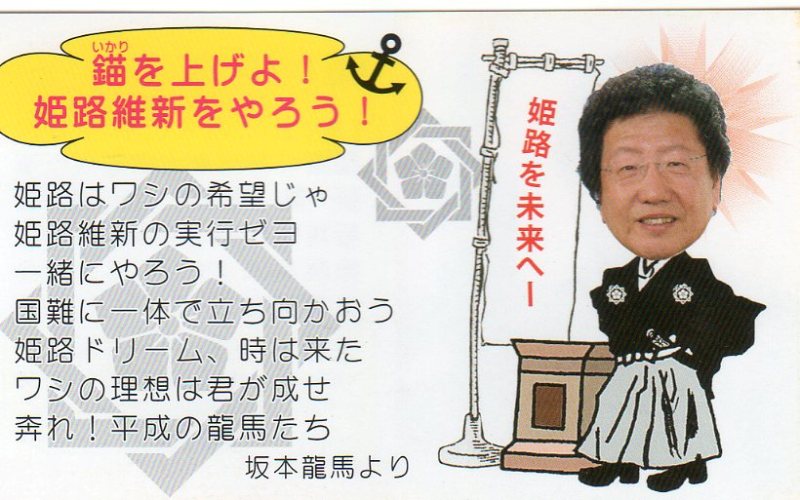 いかり
錨を上げよ！
姫路維新をやろう！
姫路はワシの希望じゃ
姫路維新の実行ゼヨ
一緒にやろう！
国難に一体で立ち向かおう
姫路ドリーム、時は来た
ワシの理想は君が成せ
奔れ！平成の龍馬たち
坂本龍馬より
姫路を未来へー